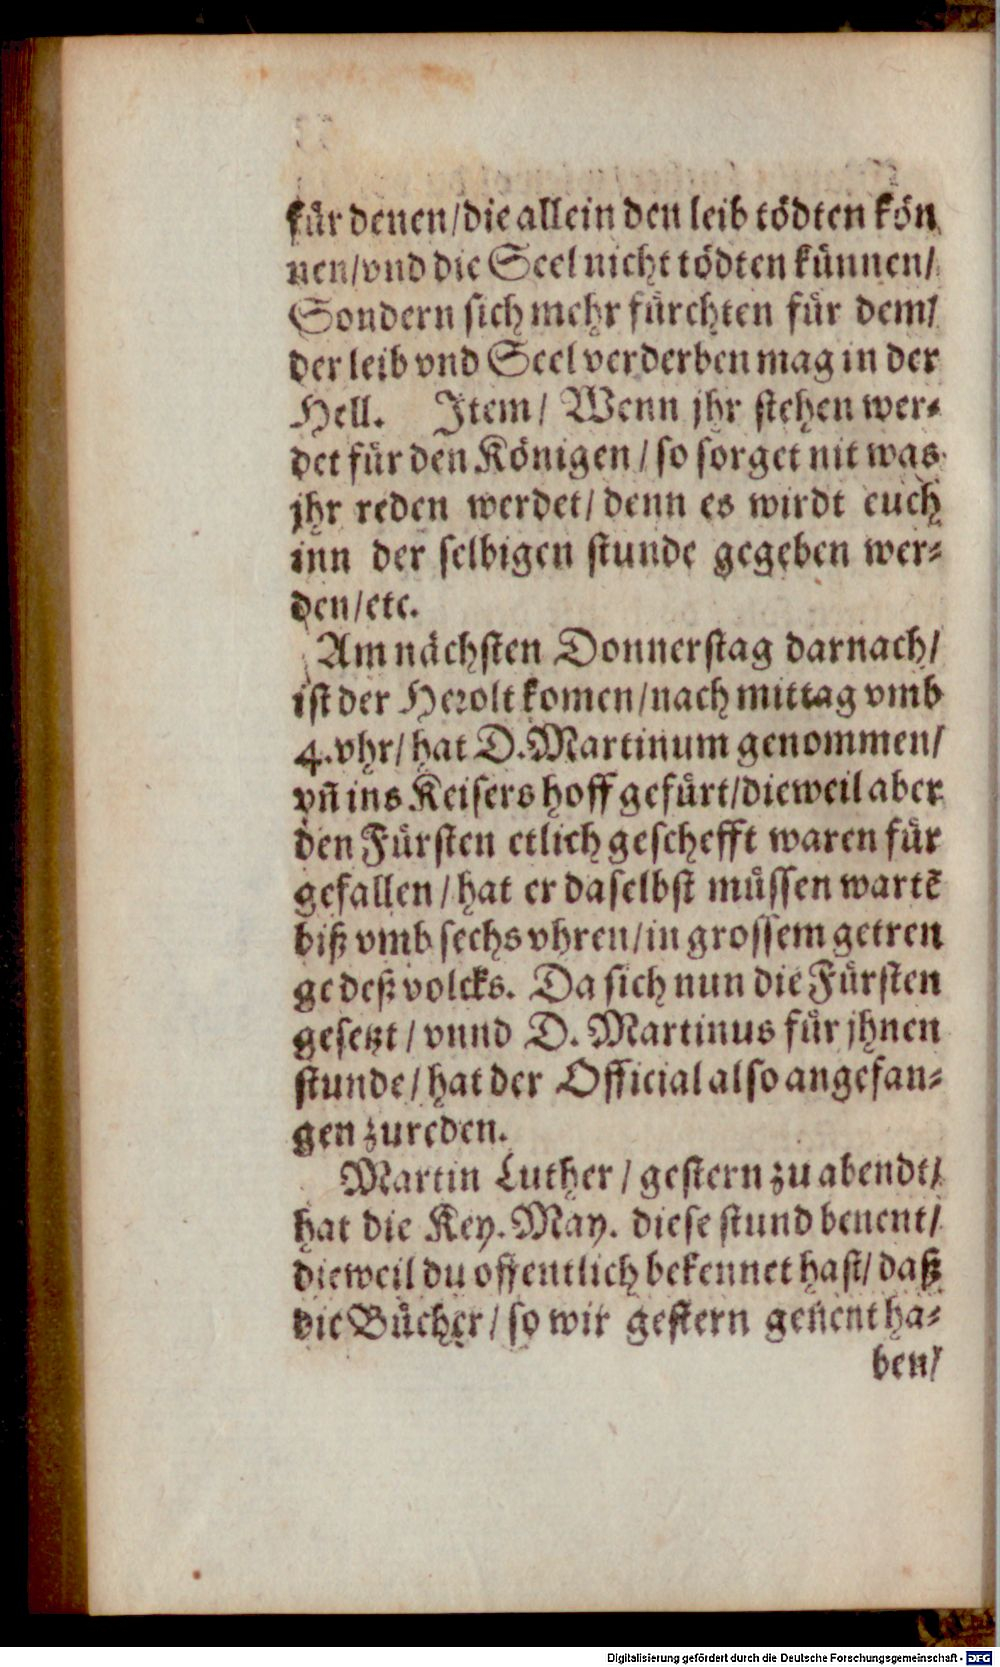 für denen/die allein den leib tödten kön
nen/vnd die Seel nicht tödten künnen/
Sondern sich mehr fürchten für dem/
der leib vnd Seel verderben mag in der
Hell. Item/ Wenn jhr stehen wer-
det für den Königen/so sorget nit was
jhr reden werdet/denn es wirdt euch
inn der selbigen stunde gegeben wer-
den/etc.
Am nächsten Donnerstag darnach/
ist der Herolt komen/nach mittag vmb
4.vhr/hat D.Martinum genommen/
vñ ins Keisers hoff gefürt/dieweil aber
den Fürsten etlich geschefft waren für
gefallen/hat er daselbst müssen wartẽ
biß vmb sechs vhren/in grossem getren
ge deß volcks. Da sich nun die Fürsten
gesetzt/vnnd D. Martinus für jhnen
stunde/hat der Official also angefan-
gen zureden.
Martin Luther/gestern zu abendt/
hat die Key. May. diese stund benent/
dieweil du offentlich bekennet hast/daß
die Bücher/so wir gestern geñent ha-
ben/
Digitalisierung gefördert durch die Deutsche Forschungsgemeinschaft - DFG